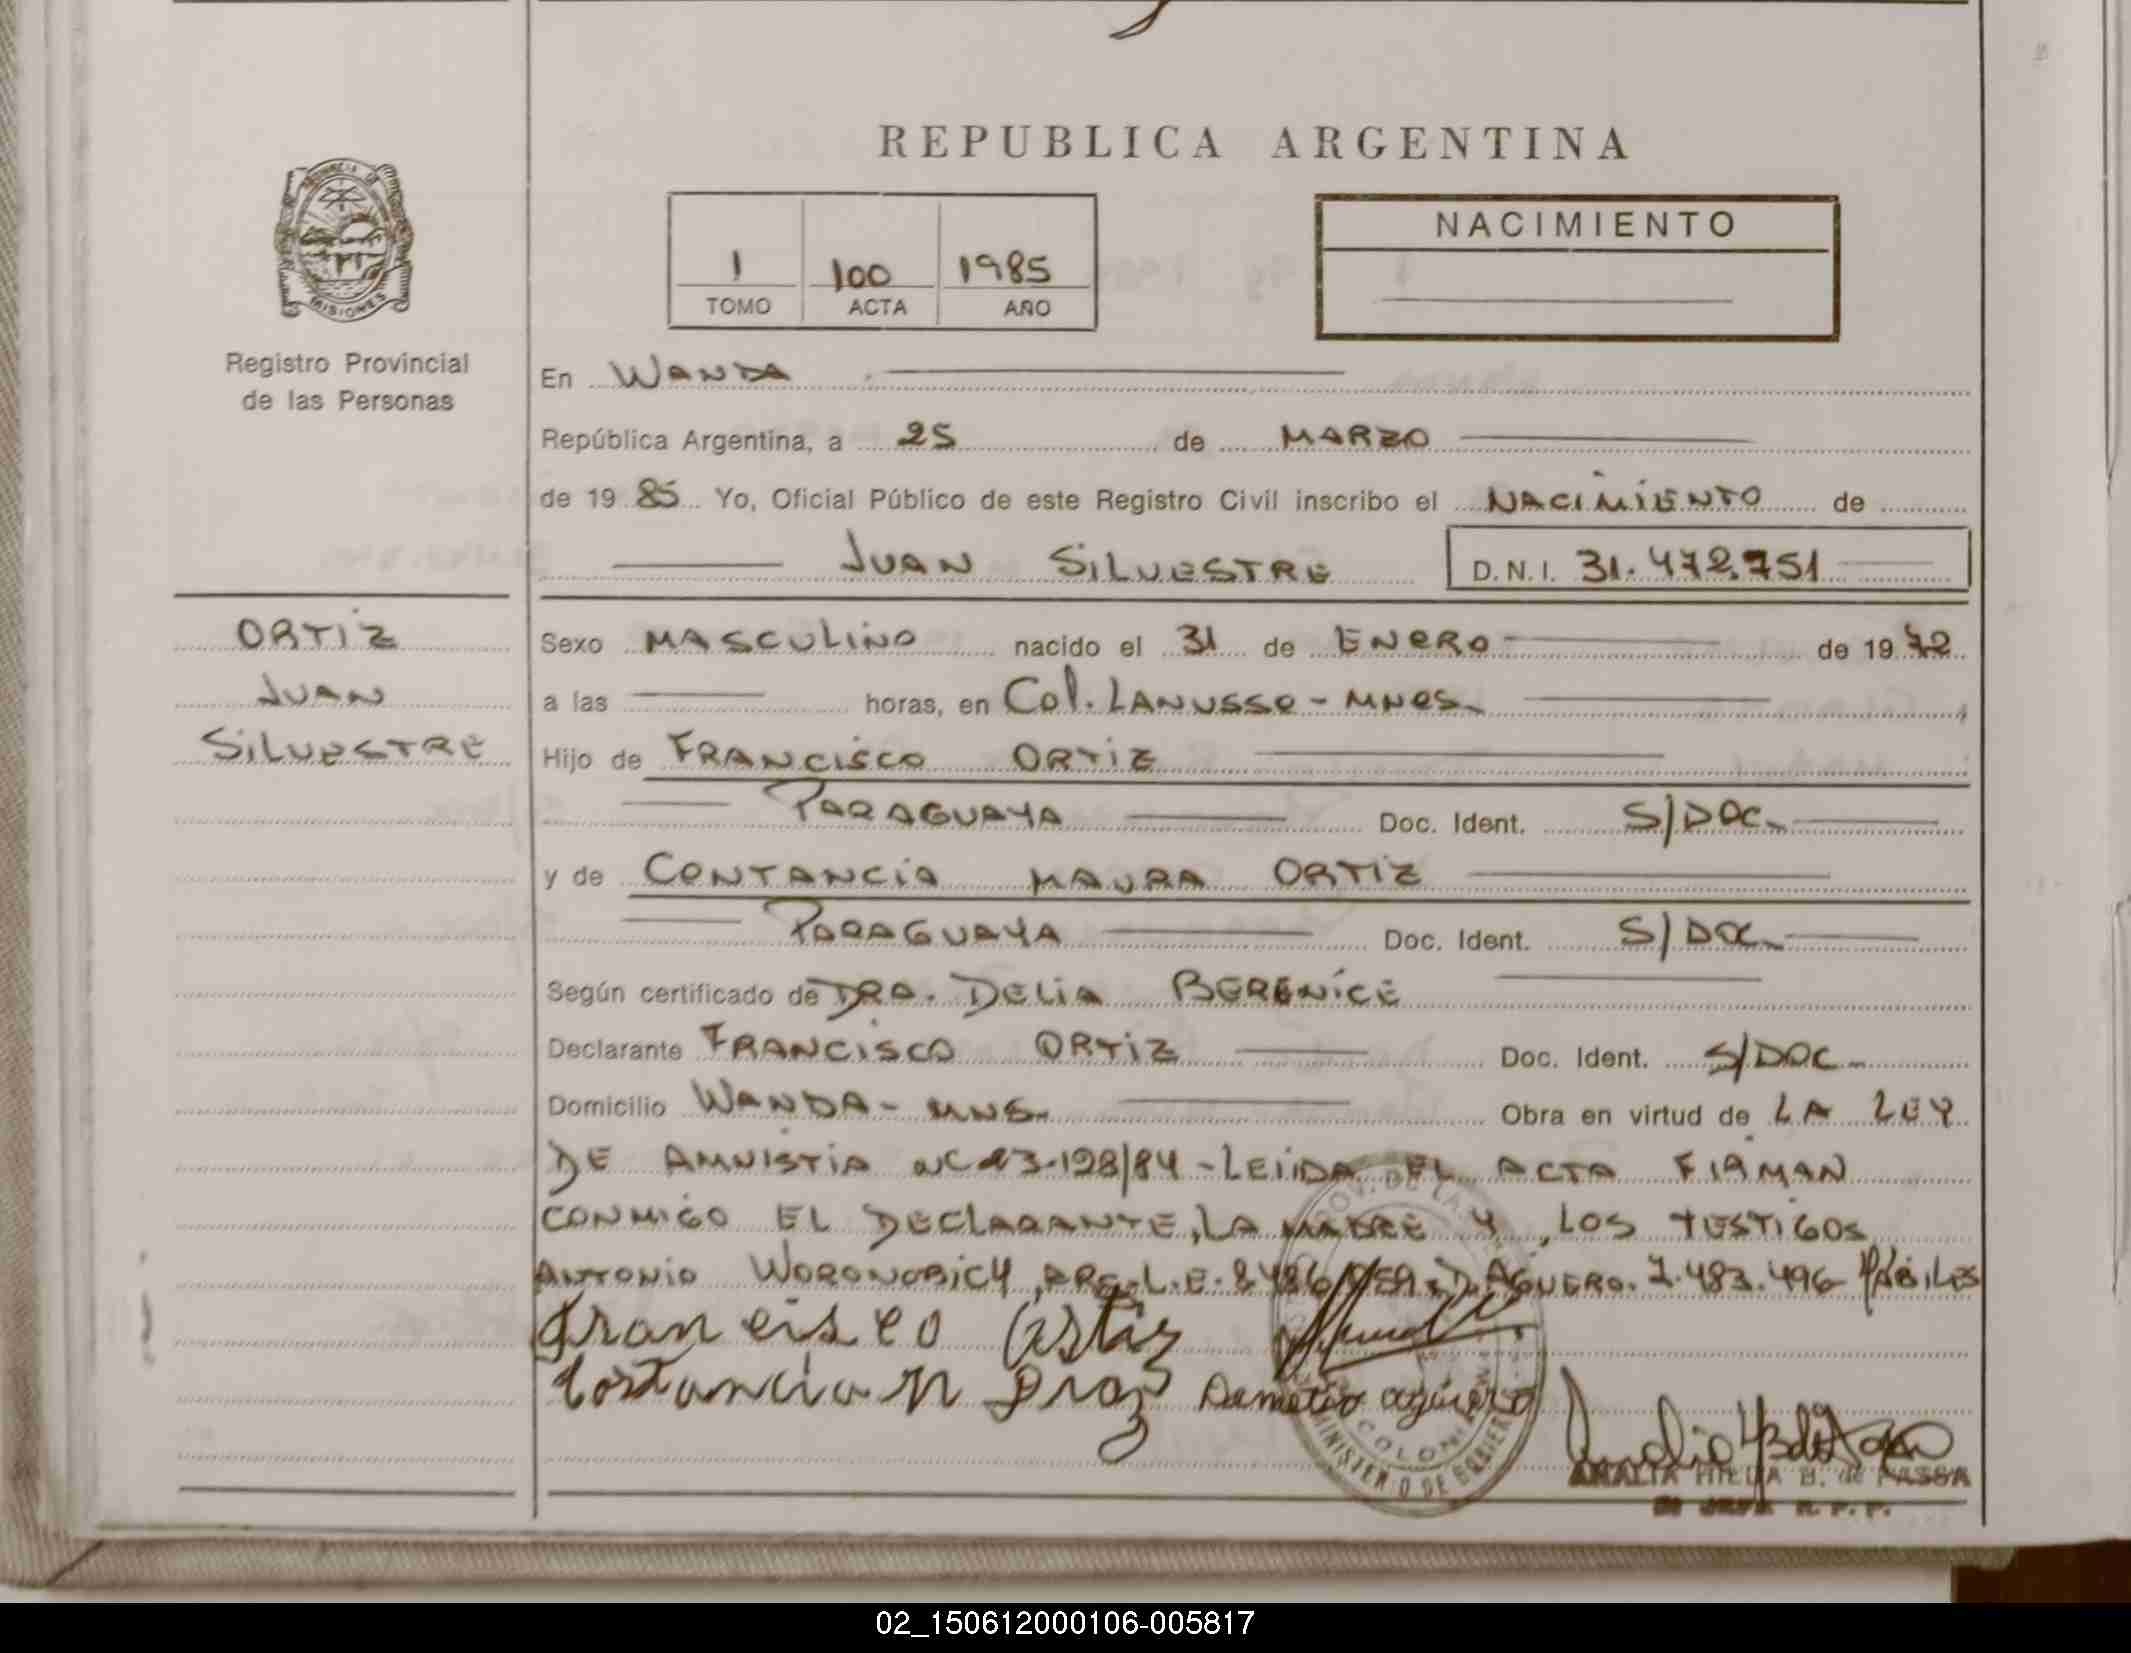 REPUBLICA ARGENTINA
PROVINCIA DE
MISIONES
Registro Provincial
de las Personas
1 100 1985
TOMO ACTA AÑO
NACIMIENTO
En WANDA
República Argentina, a 25 de MARZO
de 19 85 Yo, Oficial Público de este Registro Civil inscribo el NACIMIENTO de
JUAN SILVESTRE D.N.I. 31.472.751
ORTIZ
JUAN
SILVESTRE
Sexo MASCULINO nacido el 31 de ENERO de 19 72
a las horas, en Col. LANUSSE - MNES.
Hijo de FRANCISCO ORTIZ
PARAGUAYA Doc. Ident. S/DOC.
y de CONTANCIA MAURA ORTIZ
PARAGUAYA Doc. Ident. S/DOC.
Según certificado de DRA. DELIA BERENICE
Declarante FRANCISCO ORTIZ Doc. Ident. S/DOC.
Domicilio WANDA - MNS. Obra en virtud de LA LEY
DE AMNISTIA 23.128/84 - LEIDA EL ACTA FIRMAN
CONMIGO EL DECLARANTE, LA MADRE Y, LOS TESTIGOS
ANTONIO WORONOBICH, L.E. D. AGUERO. 7.483.496 HÁBILES
Francisco Ortiz
Costancia M Demetrio aguero
MINISTERIO DE GOBIERNO
AMALIA HILDA B. de FASSA
R. P. P.
02_150612000106-005817